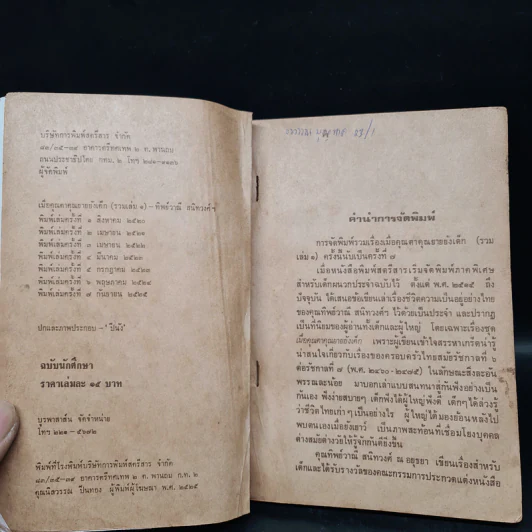 บริษัทการพิมพ์สตรีสาร จำกัด
๘๓/๓๕-๓๙ อาคารตรีทศเทพ ๒ ถ. พานถม
ถนนประชาธิปไตย กทม. ๒ โทร
ผู้จัดพิมพ์
เมื่อคุณตาคุณยายยังเด็ก (รวมเล่ม ๑) - ทิพย์วาณี สนิทวงศ์ฯ
พิมพ์เล่มครั้งที่ ๑ สิงหาคม ๒๕๒๐
พิมพ์เล่มครั้งที่ ๒ เมษายน ๒๕๒๑
พิมพ์เล่มครั้งที่ ๓ เมษายน ๒๕๒๒
พิมพ์เล่มครั้งที่ ๔ มีนาคม ๒๕๒๓
พิมพ์เล่มครั้งที่ ๕ กรกฎาคม ๒๕๒๓
พิมพ์เล่มครั้งที่ ๖ พฤษภาคม ๒๕๒๔
พิมพ์เล่มครั้งที่ ๗ กันยายน ๒๕๒๕
ปกและภาพประกอบ - 'ปีนัง'
ฉบับนักศึกษา
ราคาเล่มละ ๑๕ บาท
บูรพาสาส์น จัดจำหน่าย
โทร ๒๒๑-๕๖๓๒
พิมพ์ที่โรงพิมพ์บริษัทการพิมพ์สตรีสาร จำกัด
๘๓/๓๕-๓๙ อาคารตรีทศเทพ ๒ ถ. พานถม ก.ท. ๒
คุณนิลวรรณ ปิ่นทอง ผู้พิมพ์ผู้โฆษณา พ.ศ. ๒๕๒๕
คำนำการจัดพิมพ์
การจัดพิมพ์รวมเรื่องเมื่อคุณตาคุณยายยังเด็ก (รวม
เล่ม ๑) ครั้งนี้นับเป็นครั้งที่ ๗
เมื่อหนังสือพิมพ์สตรีสารเริ่มจัดพิมพ์ภาคพิเศษ
สำหรับเด็กผนวกประจำฉบับไว้ ตั้งแต่ พ.ศ. ๒๕๑๕ ถึง
ปัจจุบัน ได้เสนอข้อเขียนเล่าเรื่องชีวิตความเป็นอยู่อย่างไทย
ของคุณทิพย์วาณี สนิทวงศ์ฯ ไว้ด้วยเป็นประจำ และปรากฏ
เป็นที่นิยมของผู้อ่านทั้งเด็กและผู้ใหญ่ โดยเฉพาะเรื่องชุด
เมื่อคุณตาคุณยายยังเด็ก เพราะผู้เขียนเข้าใจสรรหาเกร็ดน่ารู้
น่าสนใจเกี่ยวกับเรื่องของครอบครัวไทยสมัยรัชกาลที่ ๖
ต่อรัชกาลที่ ๗ (พ.ศ. ๒๔๖๐-๒๔๗๕) ในลักษณะสิ่งละอัน
พรรณละน้อย มาบอกเล่าแบบสนทนาสู่กันฟังอย่างเป็น
กันเอง ฟังง่ายสบายๆ เด็กฟังได้ผู้ใหญ่ฟังดี เด็กๆ ได้ล่วงรู้
ว่าชีวิตไทยเก่าๆ เป็นอย่างไร ผู้ใหญ่ได้มองย้อนหลังไป
พบตนเองเมื่อยังเยาว์ เป็นภาพสะท้อนที่เชื่อมโยงบุคคล
ต่างสมัยต่างวัยให้รู้จักกันดียิ่งขึ้น
คุณทิพย์วาณี สนิทวงศ์ ณ อยุธยา เขียนเรื่องสำหรับ
เด็กและได้รับรางวัลของคณะกรรมการประกวดแต่งหนังสือ